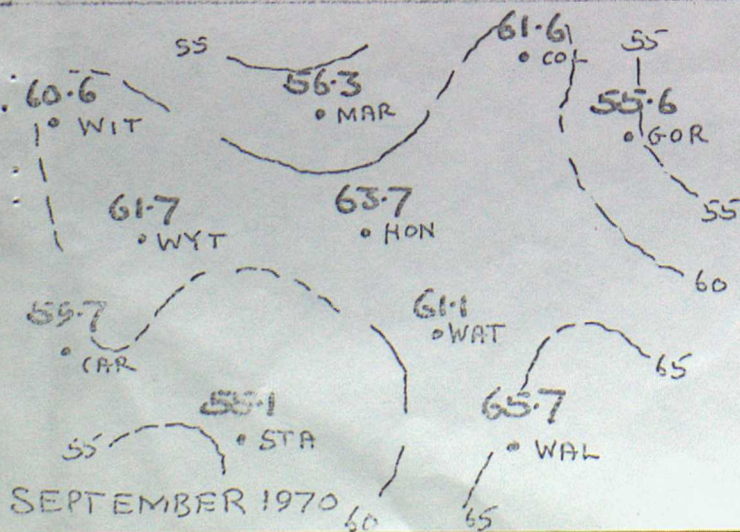 55
61·6
COL
55
60·6
WIT
56·3
MAR
55·6
GOR
61·7
WYT
63·7
HON
55
60
59·7
CAR
61·1
WAT
65
55·1
STA
65·7
WAL
55
SEPTEMBER 1970
60
65